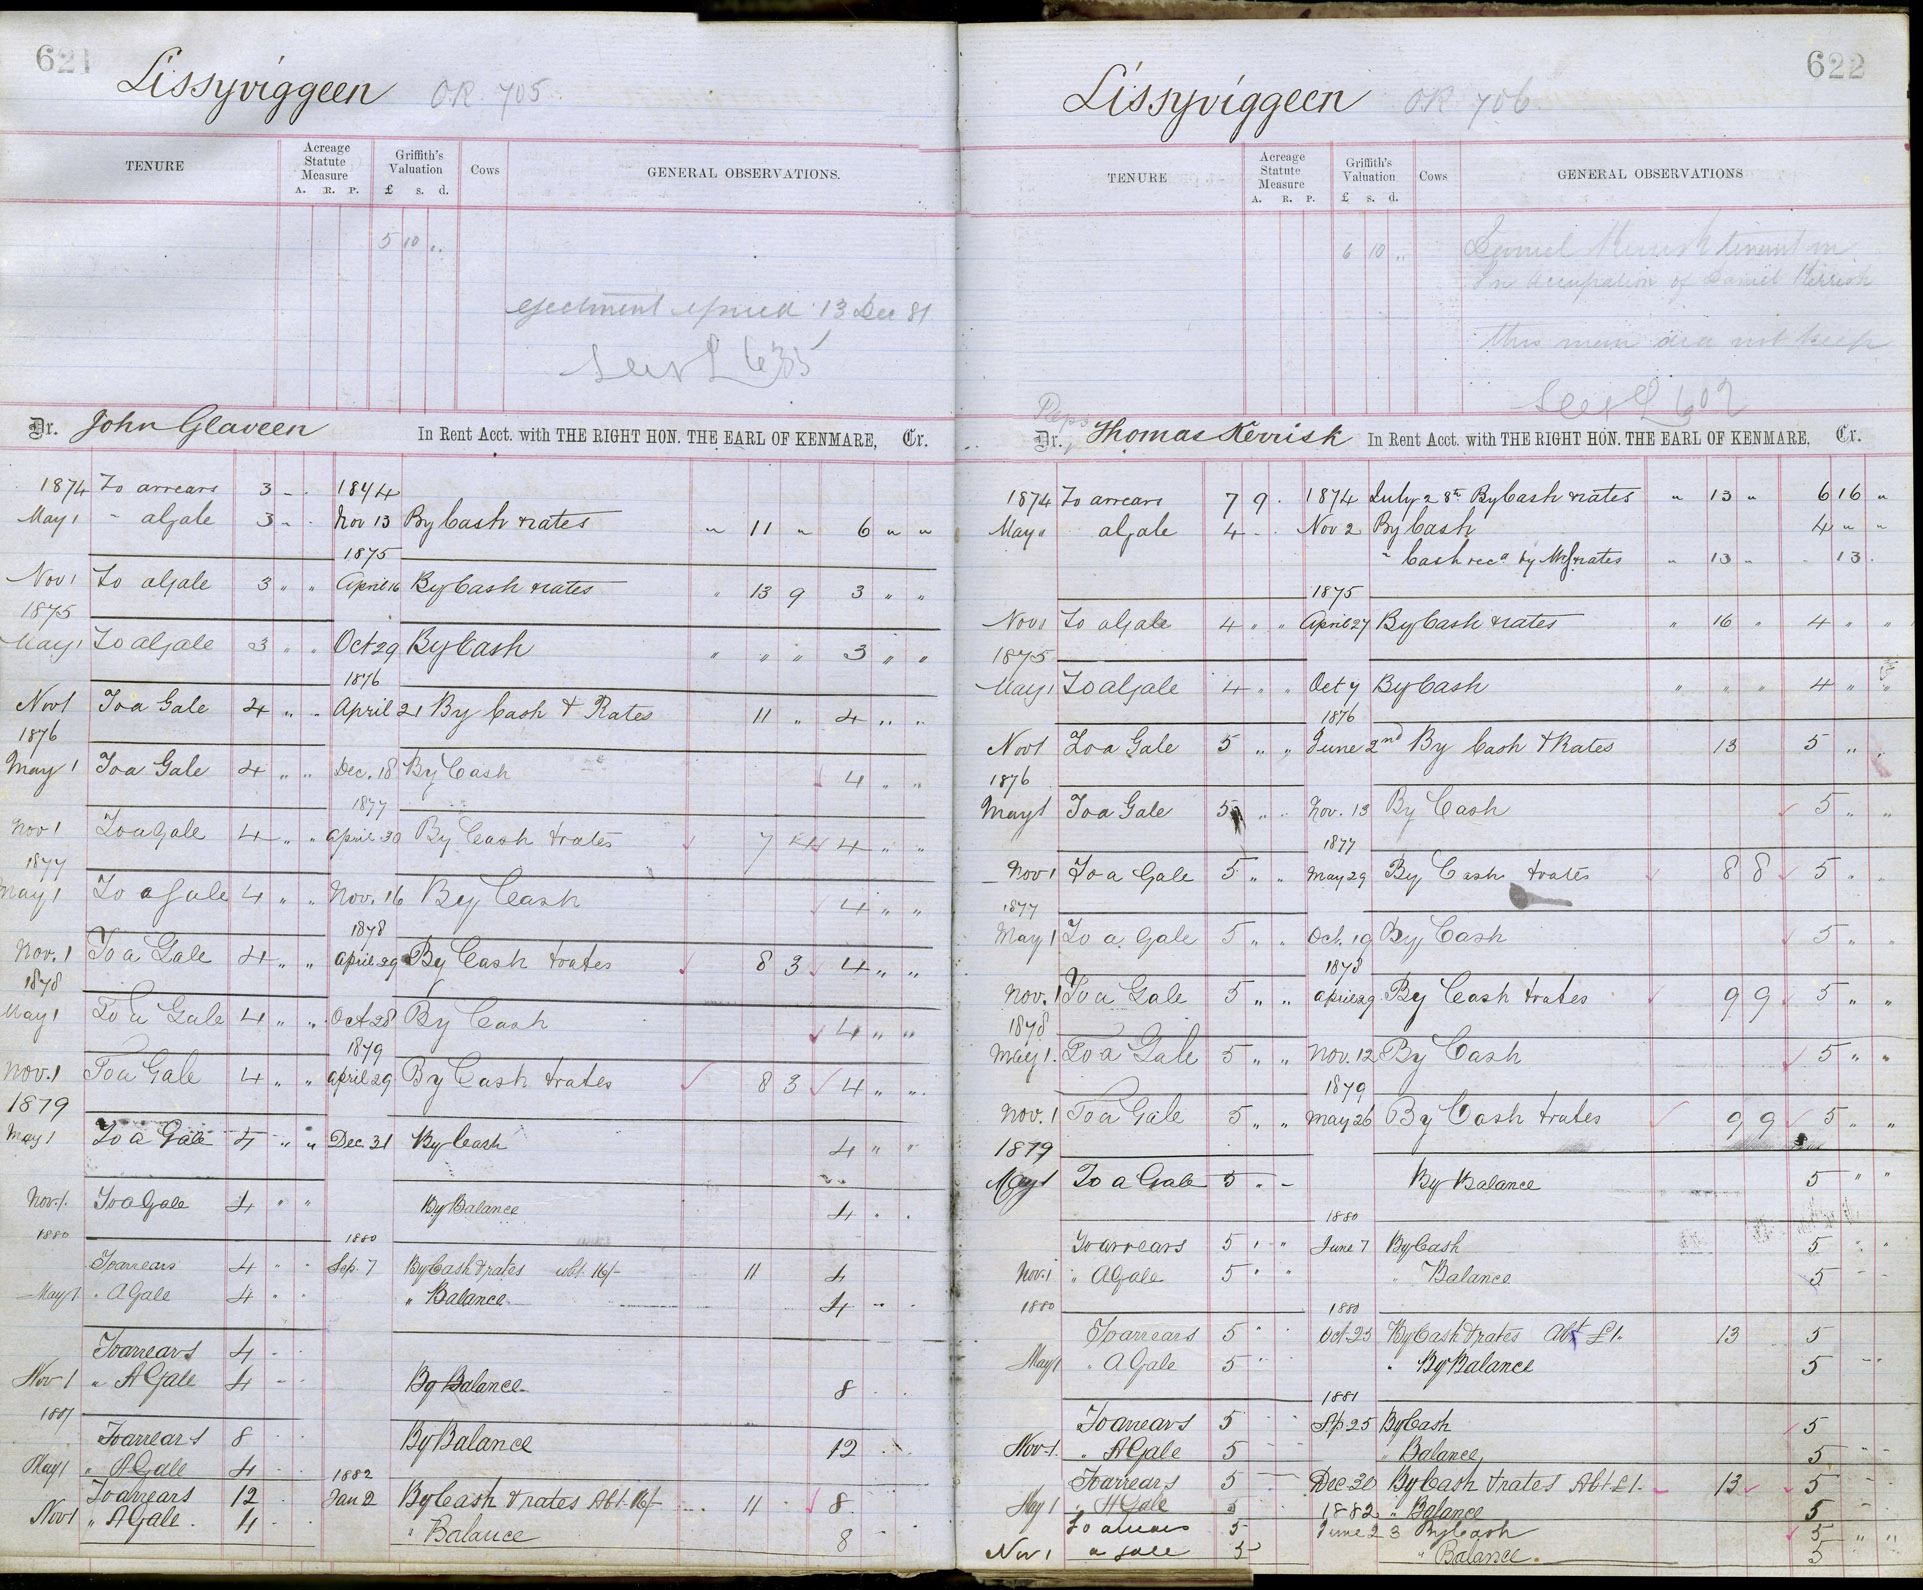 621
Lissyviggeen OR 705
TENURE
Acreage Statute Measure
A. R. P.
Griffith's Valuation
£ s. d.
Cows
GENERAL OBSERVATIONS.
5 10 "
ejectment 13 Dec 81
L 635
Dr. John Glaveen In Rent Acct. with THE RIGHT HON. THE EARL OF KENMARE, Cr.
1874 To arrears 3 - - 1874
May 1 " a Gale 3 - - Nov 13 By Cash & rates " 11 " 6 " "
1875
Nov 1 To a Gale 3 " " April 16 By Cash & rates " 13 9 3 " "
1875
May 1 To a Gale 3 " " Oct 29 By Cash " " " 3 " "
1876
Nov 1 To a Gale 4 " " April 21 By Cash & Rates 11 " 4 " "
1876
May 1 To a Gale 4 " " Dec. 18 By Cash 4 " "
1877
Nov 1 To a Gale 4 " " April 30 By Cash & rates 7 4 " "
1877
May 1 To a Gale 4 " " Nov. 16 By Cash 4 " "
1878
Nov. 1 To a Gale 4 " " April 29 By Cash & rates 8 3 4 " "
1878
May 1 To a Gale 4 " " Oct 28 By Cash 4 " "
1879
Nov. 1 To a Gale 4 " " April 29 By Cash & rates 8 3 4 " "
1879
May 1 To a Gale 4 " " Dec. 31 By Cash 4 " "
Nov. 1. To a Gale 4 " " By Balance 4 " "
1880 1880
To arrears 4 " " Sep. 7 By Cash & rates abt. 16/- 11 4
May 1 " A Gale 4 " " " Balance 4 " "
To arrears 4 - -
Nov 1 " A Gale 4 - - By Balance 8 " "
1881
To arrears 8 " " By Balance 12 " "
May 1 " A Gale 4 - - 1882
To arrears 12 " Jan 2 By Cash & rates Abt. 16/- 11 " 8
Nov 1 " A Gale 4 " Balance 8
622
Lissyviggeen OR 706
TENURE
Acreage Statute Measure
A. R. P.
Griffith's Valuation
£ s. d.
Cows
GENERAL OBSERVATIONS
6 10 "
Daniel tenant in
In Occupation of Daniel Kerrisk
this man did not keep
L 602
Dr. Thomas Kerrisk In Rent Acct. with THE RIGHT HON. THE EARL OF KENMARE, Cr.
1874 To arrears 7 9 - 1874 July 28th By Cash & rates " 13 " 6 16 "
May 1 a Gale 4 - - Nov 2 By Cash 4 " "
" Cash recd by & rates " 13 " 13
1875
Nov 1 To a Gale 4 " " April 27 By Cash & rates " 16 " 4 " "
1875
May 1 To a Gale 4 " " Oct 7 By Cash " " " 4 " "
1876
Nov 1 To a Gale 5 " " June 2nd By Cash & Rates 13 5 " "
1876
May 1 To a Gale 5 " " Nov. 13 By Cash 5 " "
1877
Nov 1 To a Gale 5 " " May 29 By Cash & rates 8 8 5 " "
1877
May 1 To a Gale 5 " " Oct. 19 By Cash 5 " "
1878
Nov. 1 To a Gale 5 " " April 29 By Cash & rates 9 9 5 " "
1878
May 1. To a Gale 5 " " Nov. 12 By Cash 5 " "
1879
Nov. 1 To a Gale 5 " " May 26 By Cash & rates 9 9 5 " "
1879
May 1 To a Gale 5 " - By Balance 5 " "
1880
To arrears 5 " " June 7 By Cash 5 " "
Nov. 1 " A Gale 5 " " " Balance 5 " "
1880 1880
To arrears 5 " " Oct. 25 By Cash & rates Abt £1. 13 5
May 1 " A Gale 5 " " " By Balance 5 " "
1881
To arrears 5 " " Sp. 25 By Cash 5
Nov 1. " A Gale 5 - - " Balance 5 " "
To arrears 5 - - Dec. 20 By Cash & rates Abt £1. 13 5
May 1 " A Gale 5 1882 " Balance 5
To arrears 5 June 23 By Cash 5 " "
Nov 1 a gale 5 " Balance. 5